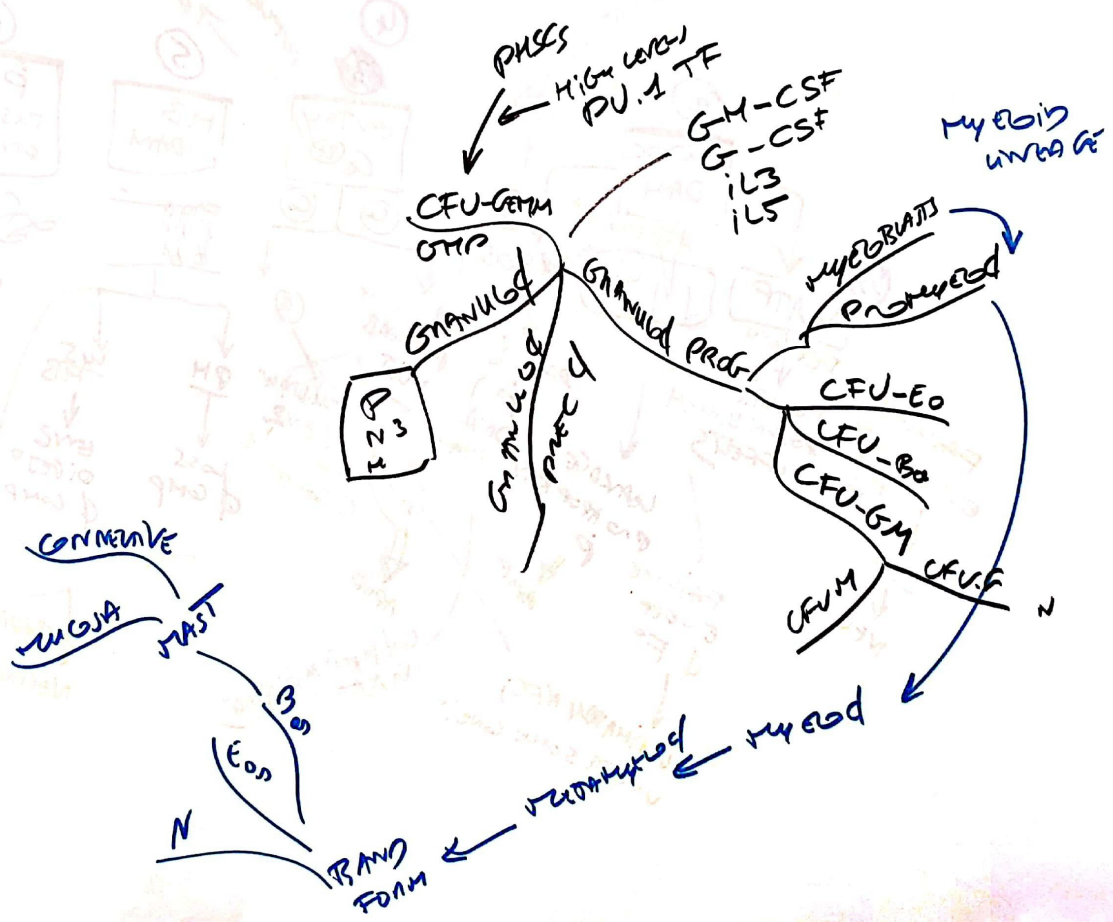 PHSCS
HIGH LEVELS
PU.1 TF
GM-CSF
G-CSF
iL3
iL5
MYELOID
LINEAGE
CFU-GEMM
GMP
GRANULOd
GRANULOd
PREC d
GRANULOd PROG
MYELOBLASTS
PROMYELOd
CFU-EO
CFU-Ba
CFU-GM
CFU M
CFU.G
N
MYELOd
METAMYELOd
BAND
FORM
N
EOS
BAS
MAST
CONNECTIVE
MUCOSA